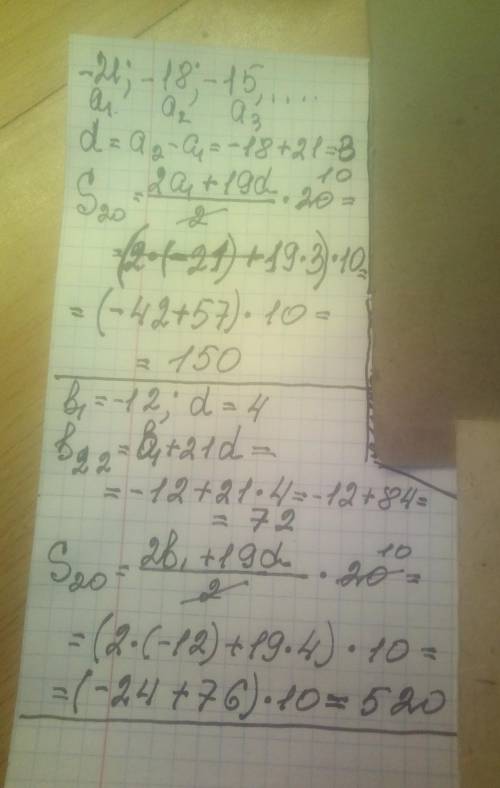 -21; -18; -15, ....
a₁ a₂ a₃
d = a₂ - a₁ = -18 + 21 = 3
S₂₀ = (2a₁ + 19d)/2 · 20 = 10
= (2·(-21) + 19·3)·10 =
= (-42 + 57)·10 =
= 150
b₁ = -12; d = 4
b₂₂ = b₁ + 21d =
= -12 + 21·4 = -12 + 84 =
= 72
S₂₀ = (2b₁ + 19d)/2 · 20 = 10
= (2·(-12) + 19·4)·10 =
= (-24 + 76)·10 = 520